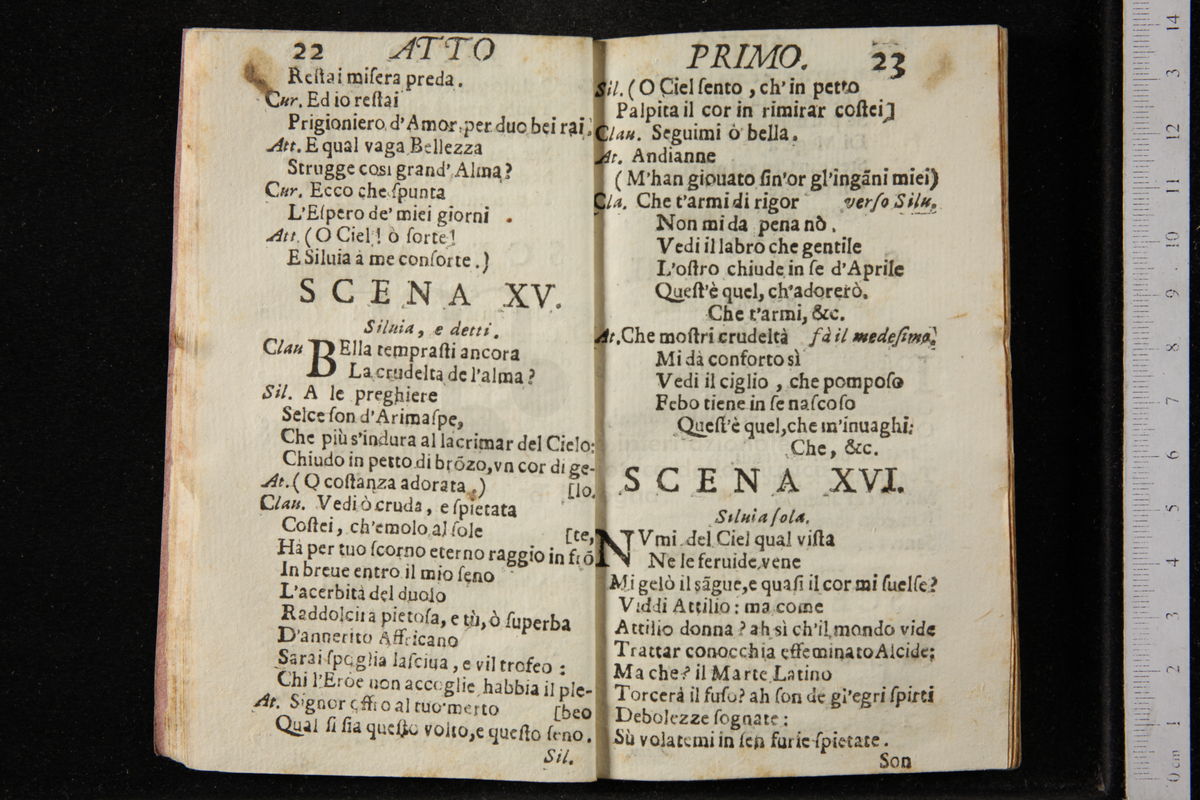 22 ATTO
Reſtai miſera preda.
Cur. Ed io reſtai
Prigioniero d'Amor per duo bei rai.
Att. E qual vaga Bellezza
Strugge cosi grand' Alma?
Cur. Ecco che ſpunta
L'Eſpero de' miei giorni .
Att. (O Ciel! ò ſorte!
E Siluia à me conſorte.)
SCENA XV.
Siluia, e detti.
Clau BElla tempraſti ancora
La crudelta de l'alma?
Sil. A le preghiere
Selce ſon d'Arimaſpe,
Che più s'indura al lacrimar del Cielo:
Chiudo in petto di brõzo, vn cor di ge-
At. (O coſtanza adorata.) [lo.
Clau. Vedi ò cruda, e ſpietata
Coſtei, ch'emolo al ſole [te,
Hà per tuo ſcorno eterno raggio in frõ
In breue entro il mio ſeno
L'acerbità del duolo
Raddolcira pietoſa, e tù, ò ſuperba
D'annerito Affricano
Sarai ſpoglia laſciua, e vil trofeo :
Chi l'Eroe non accoglie, habbia il ple-
At. Signor offro al tuo merto [beo
Qual ſi ſia queſto volto, e queſto ſeno.
Sil.
PRIMO. 23
Sil. (O Ciel ſento, ch'in petto
Palpita il cor in rimirar coſtei]
Clau. Seguimi ò bella.
At. Andianne
(M'han giouato ſin'or gl'ingãni miei)
Cla. Che t'armi di rigor verſo Silu.
Non mi da pena nò.
Vedi il labro che gentile
L'oſtro chiude in ſe d'Aprile
Queſt'è quel, ch'adorerò.
Che t'armi, &c.
At. Che moſtri crudeltà fà il medeſimo.
Mi dà conforto sì
Vedi il ciglio, che pompoſo
Febo tiene in ſe naſcoſo
Queſt'è quel, che m'inuaghi:
Che, &c.
SCENA XVI.
Siluia ſola.
NVmi del Ciel qual viſta
Ne le feruide vene
Mi gelò il sãgue, e quaſi il cor mi ſuelſe?
Viddi Attilio: ma come
Attilio donna? ah sì ch'il mondo vide
Trattar conocchia effeminato Alcide:
Ma che? il Marte Latino
Torcerà il fuſo? ah ſon de gl'egri ſpirti
Debolezze ſognate:
Sù volatemi in ſen furie ſpietate.
Son